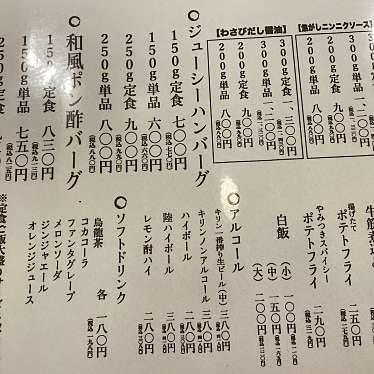 【焦がしニンニクソース】
【わさびだし醤油】
300g定食 一、三〇〇円
300g単品 一、二〇〇円
200g定食 九〇〇円
200g単品 八〇〇円
○ジューシーハンバーグ
150g定食 七〇〇円
(税込 七七〇円)
150g単品 六〇〇円
(税込 六六〇円)
250g定食 九〇〇円
(税込 九九〇円)
250g単品 八〇〇円
(税込 八八〇円)
○和風ポン酢バーグ
150g定食 八三〇円
(税込 九一三円)
150g単品 七五〇円
(税込 八二五円)
250g定食
揚げたて
ポテトフライ 二五〇円
(税込 二七五円)
やみつきスパイシー
ポテトフライ 二九〇円
白飯
(小) 一〇〇円
(中) 一五〇円
(大) 二〇〇円
○アルコール
キリン一番搾り生ビール(中) 三八〇円
キリンノンアルコール 三八〇円
ハイボール 二八〇円
陸ハイボール 三八〇円
レモン酎ハイ 二八〇円
○ソフトドリンク
烏龍茶
コカコーラ
ファンタグレープ
メロンソーダ
ジンジャエール
オレンジジュース
各 一八〇円
(税込 一九八円)